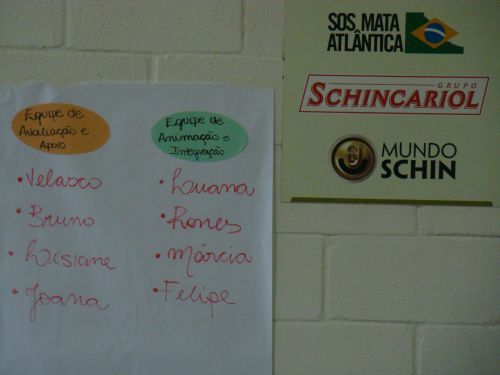 Equipe de
Avaliação e
Apoio
• Velasco
• Bruno
• Lisiane
• Joana
Equipe de
Animação e
Integração
• Luana
• Rones
• Márcia
• Felipe
SOS MATA
ATLÂNTICA
GRUPO
SCHINCARIOL
MUNDO
SCHIN